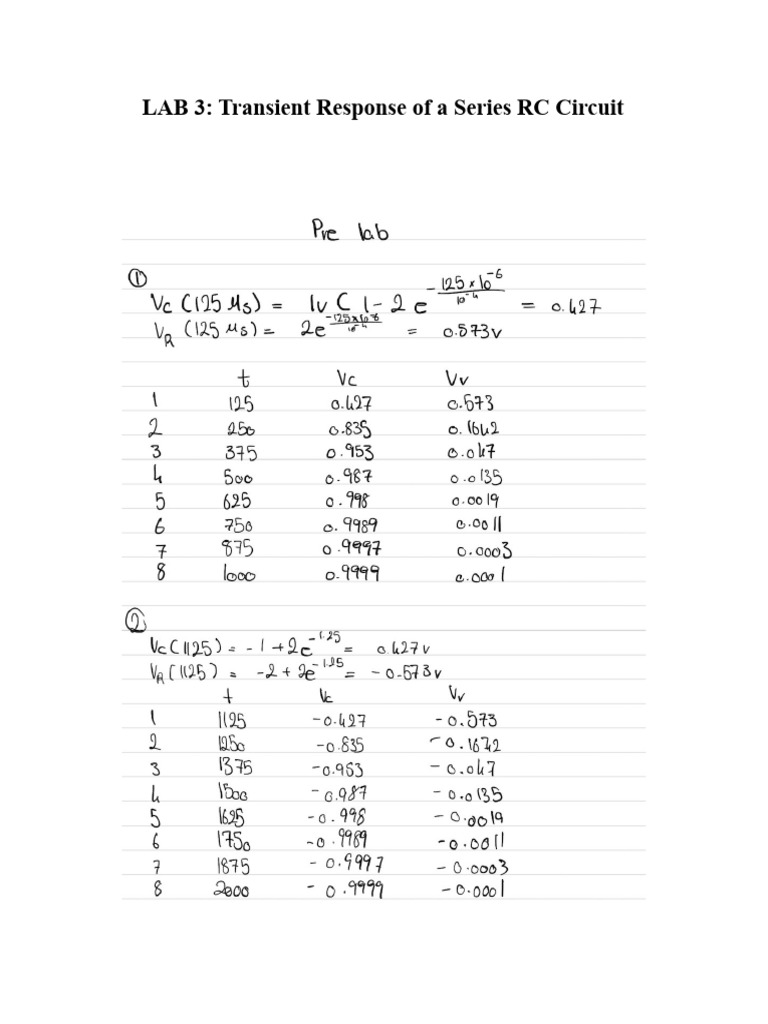 LAB 3: Transient Response of a Series RC Circuit
Pre lab
①
Vc (125 μs) = 1v ( 1 - 2 e^(-125×10^-6/10^-4) = 0.427
VR (125 μs) = 2e^(-125×10^-6/10^-4) = 0.573v
t Vc Vv
1 125 0.427 0.573
2 250 0.835 0.1642
3 375 0.953 0.047
4 500 0.987 0.0135
5 625 0.998 0.0019
6 750 0.9989 0.0011
7 875 0.9997 0.0003
8 1000 0.9999 0.0001
②
Vc (1125) = -1 + 2e^-1.25 = 0.427v
VR (1125) = -2 + 2e^-1.25 = -0.573v
t Vc Vv
1 1125 -0.427 -0.573
2 1250 -0.835 -0.1642
3 1375 -0.953 -0.047
4 1500 -0.987 -0.0135
5 1625 -0.998 -0.0019
6 1750 -0.9989 -0.0011
7 1875 -0.9997 -0.0003
8 2000 -0.9999 -0.0001